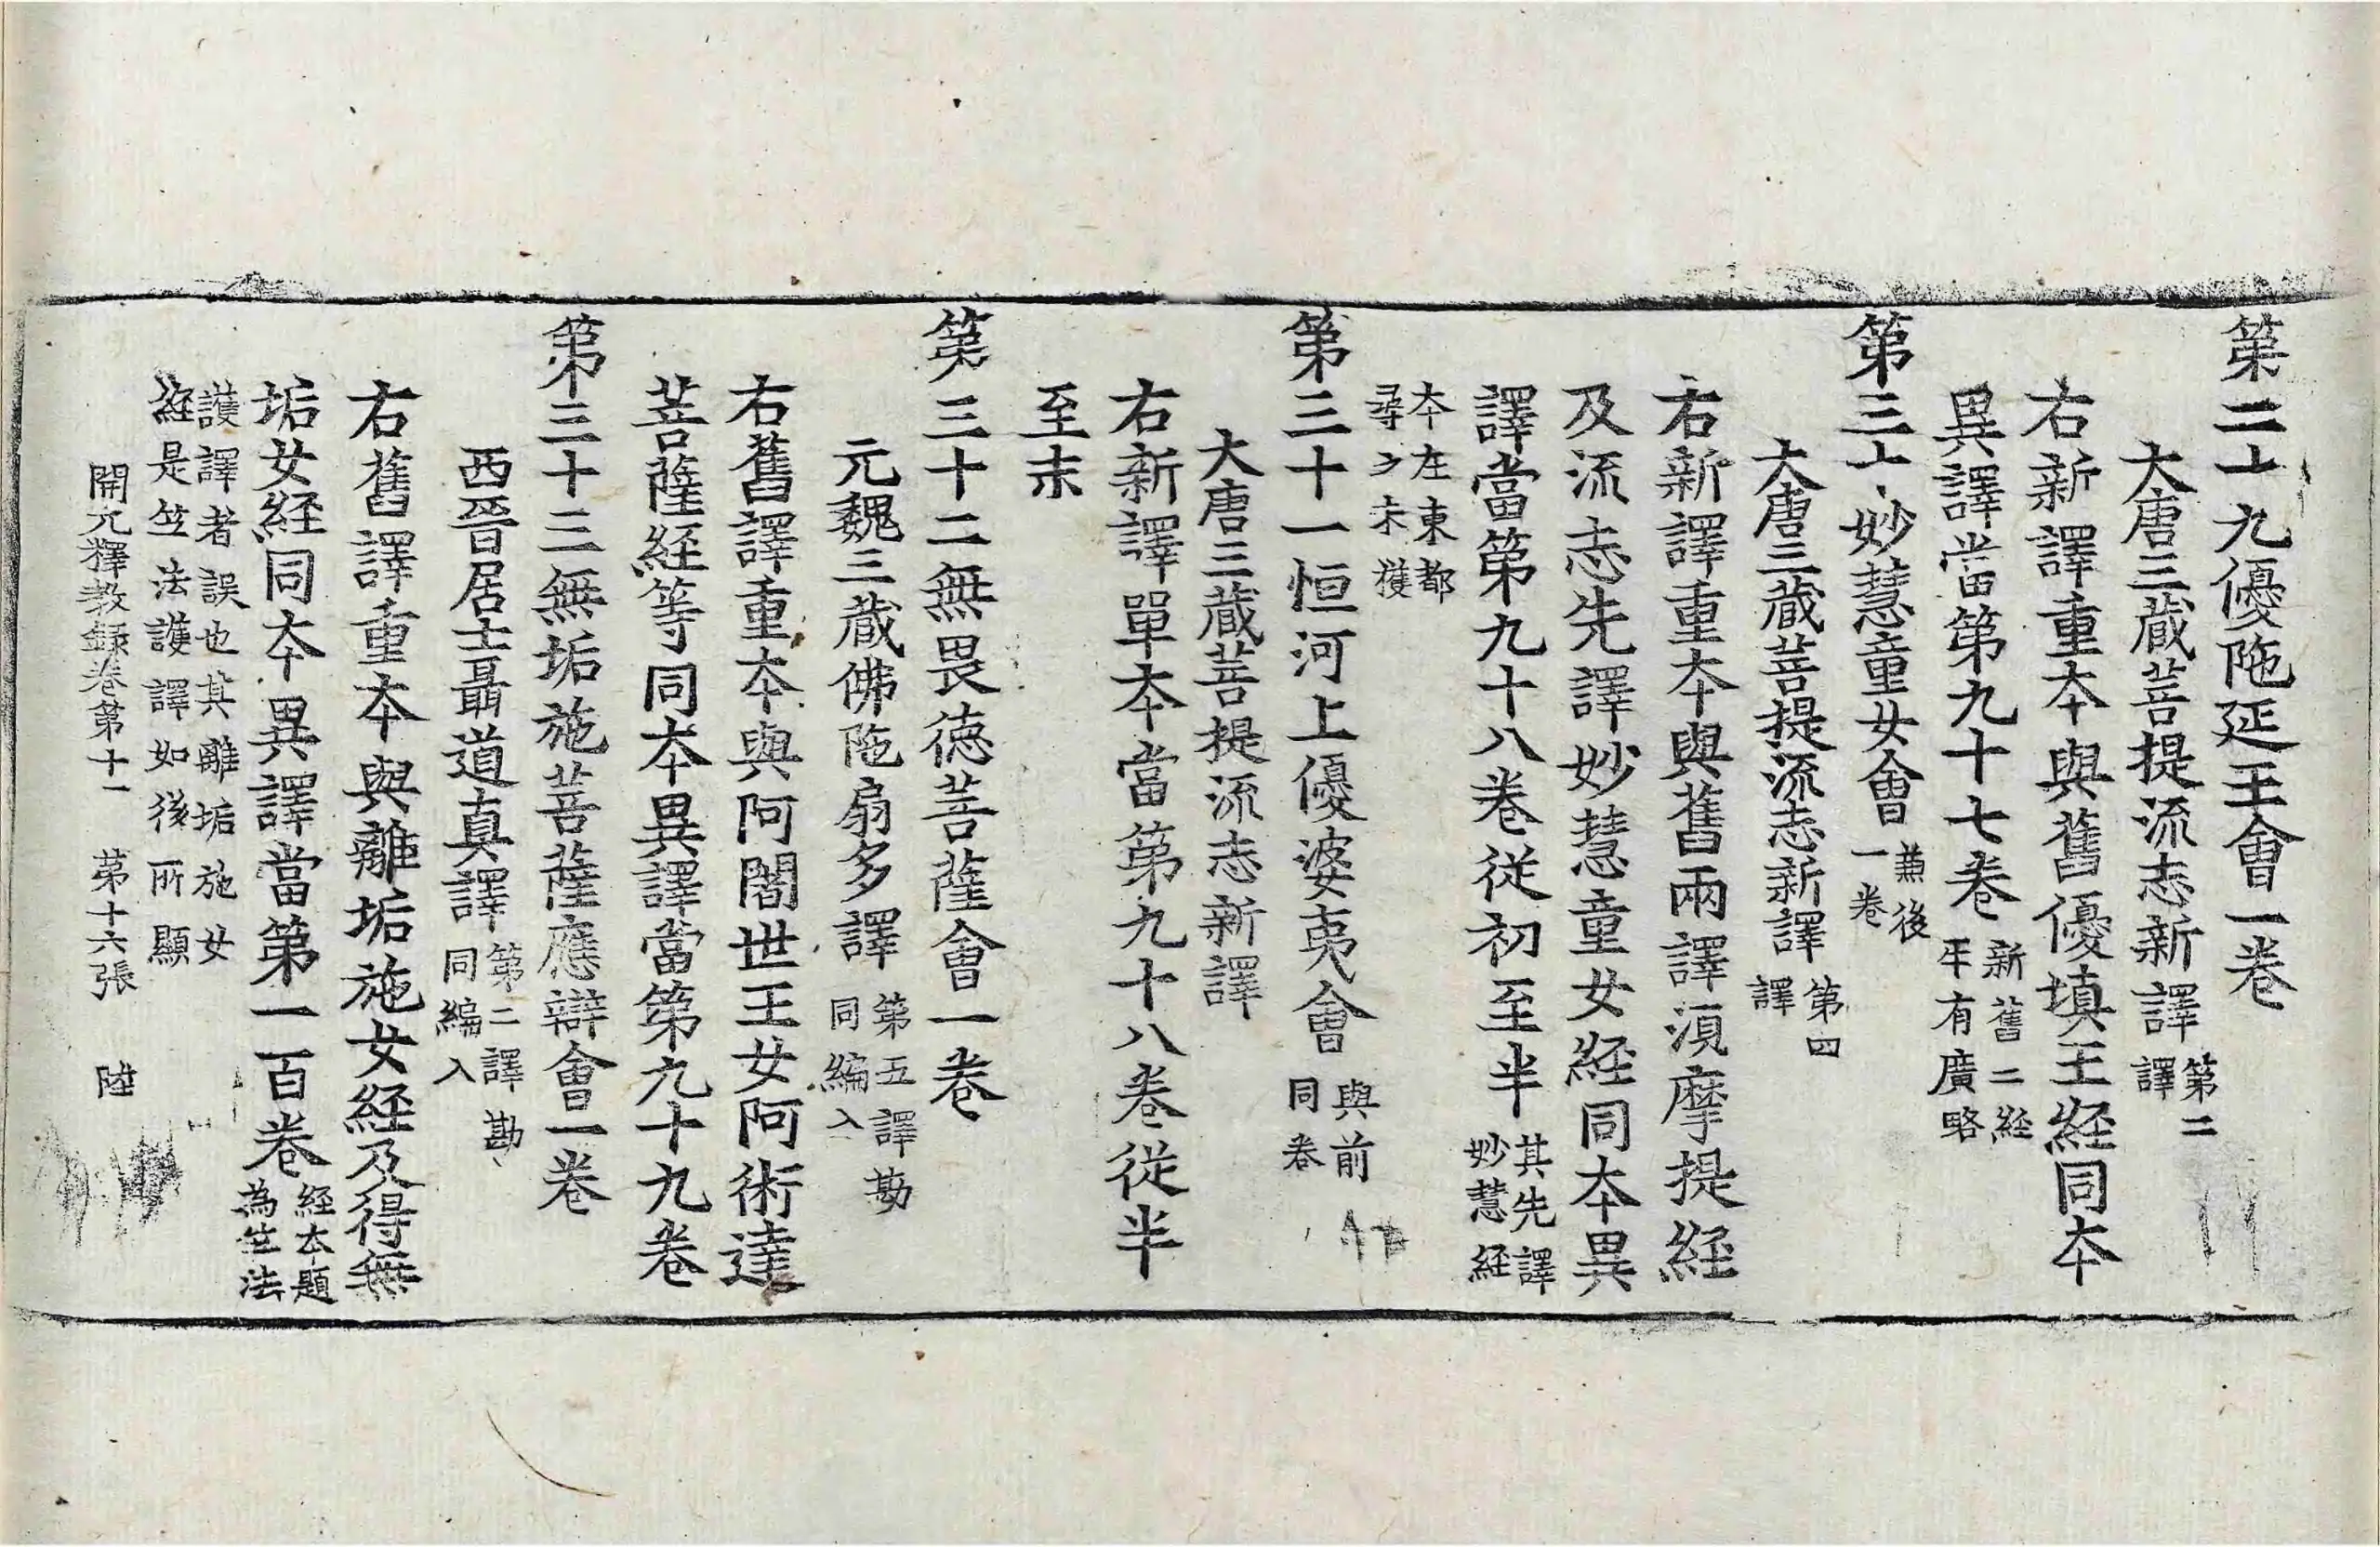 第二十九優陁延王會一卷
大唐三藏菩提流志新譯第二譯
右新譯重夲與舊優填王經同夲
異譯當第九十七卷新舊二經互有廣略
第三十妙慧童女會兼後一卷
大唐三藏菩提流志新譯第四譯
右新譯重夲與舊兩譯湏摩提經
及流志先譯妙慧童女經同夲異
譯當第九十八卷從初至半其先譯妙慧經
夲在東都尋之未獲
第三十一恒河上優婆夷會與前同卷
大唐三藏菩提流志新譯
右新譯單夲當第九十八卷從半
至末
第三十二無畏德菩薩會一卷
元魏三藏佛陁扇多譯第五譯勘同編入
右舊譯重夲與阿闍世王女阿術達
菩薩經等同夲異譯當第九十九卷
第三十三無垢施菩薩應辯會一卷
西晉居士聶道真譯第二譯勘同編入
右舊譯重夲與離垢施女經及得無
垢女經同夲異譯當第一百卷經夲題為竺法
護譯者誤也其離垢施女經是竺法護譯如後所顯
開元釋教錄卷第十一　第十六張　陞